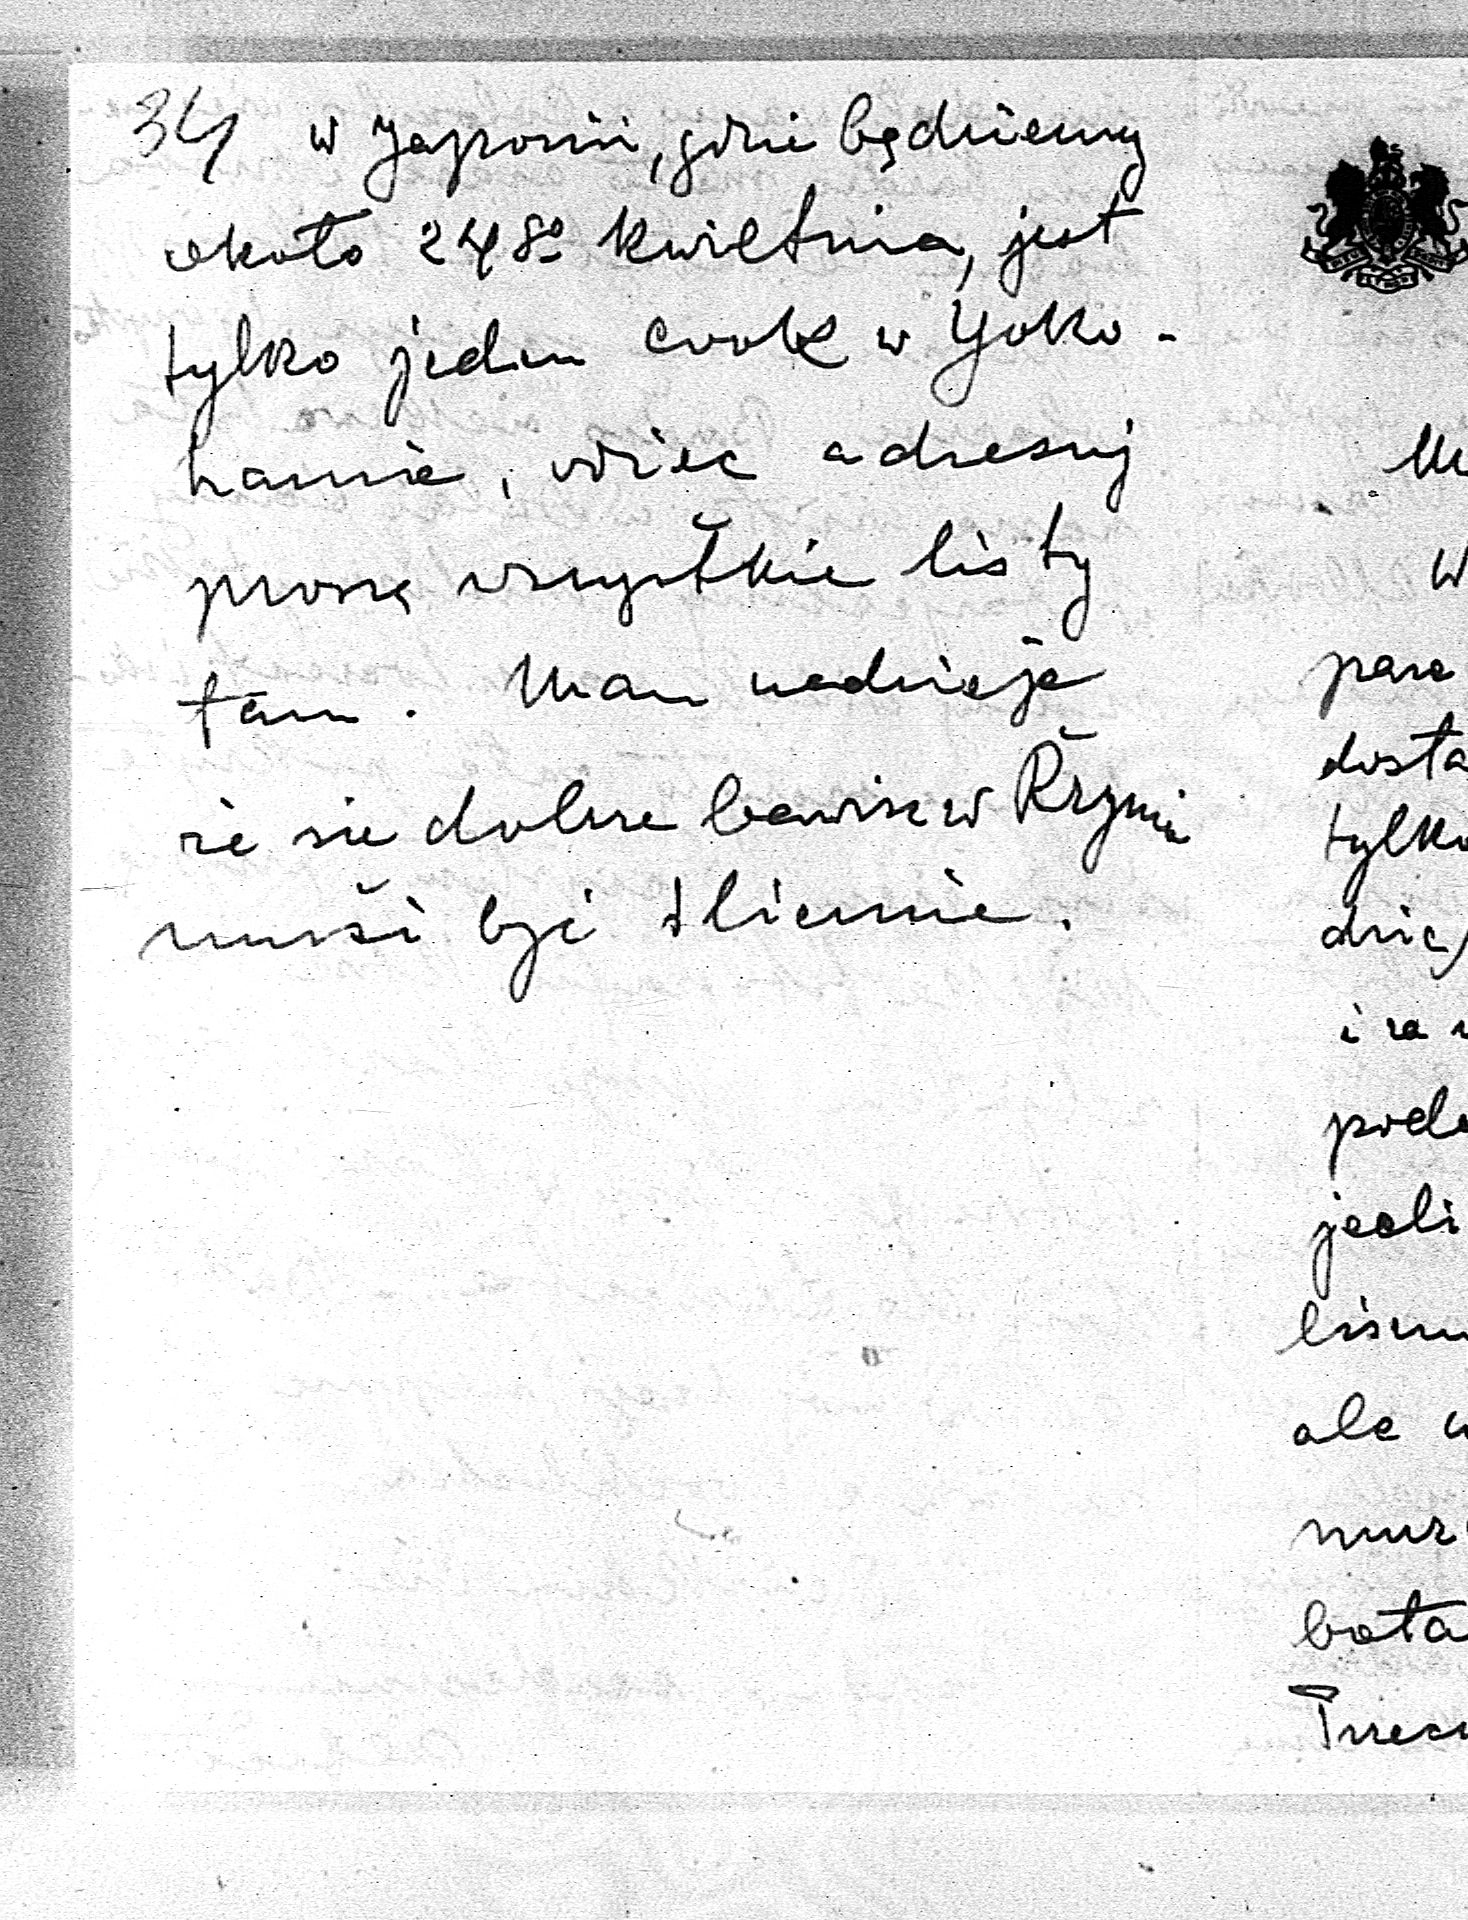 34 w Japonii, gdzie będziemy
około 24go kwietnia, jest
tylko jeden Cook w Yoko-
hamie, więc adresuj
proszę wszystkie listy
tam. Mam nadzieję
że się dobrze bawisz w Rzymie
musi być ślicznie.
W
para
dosta
tylko
dzie,
i za
poda
jeali
ale